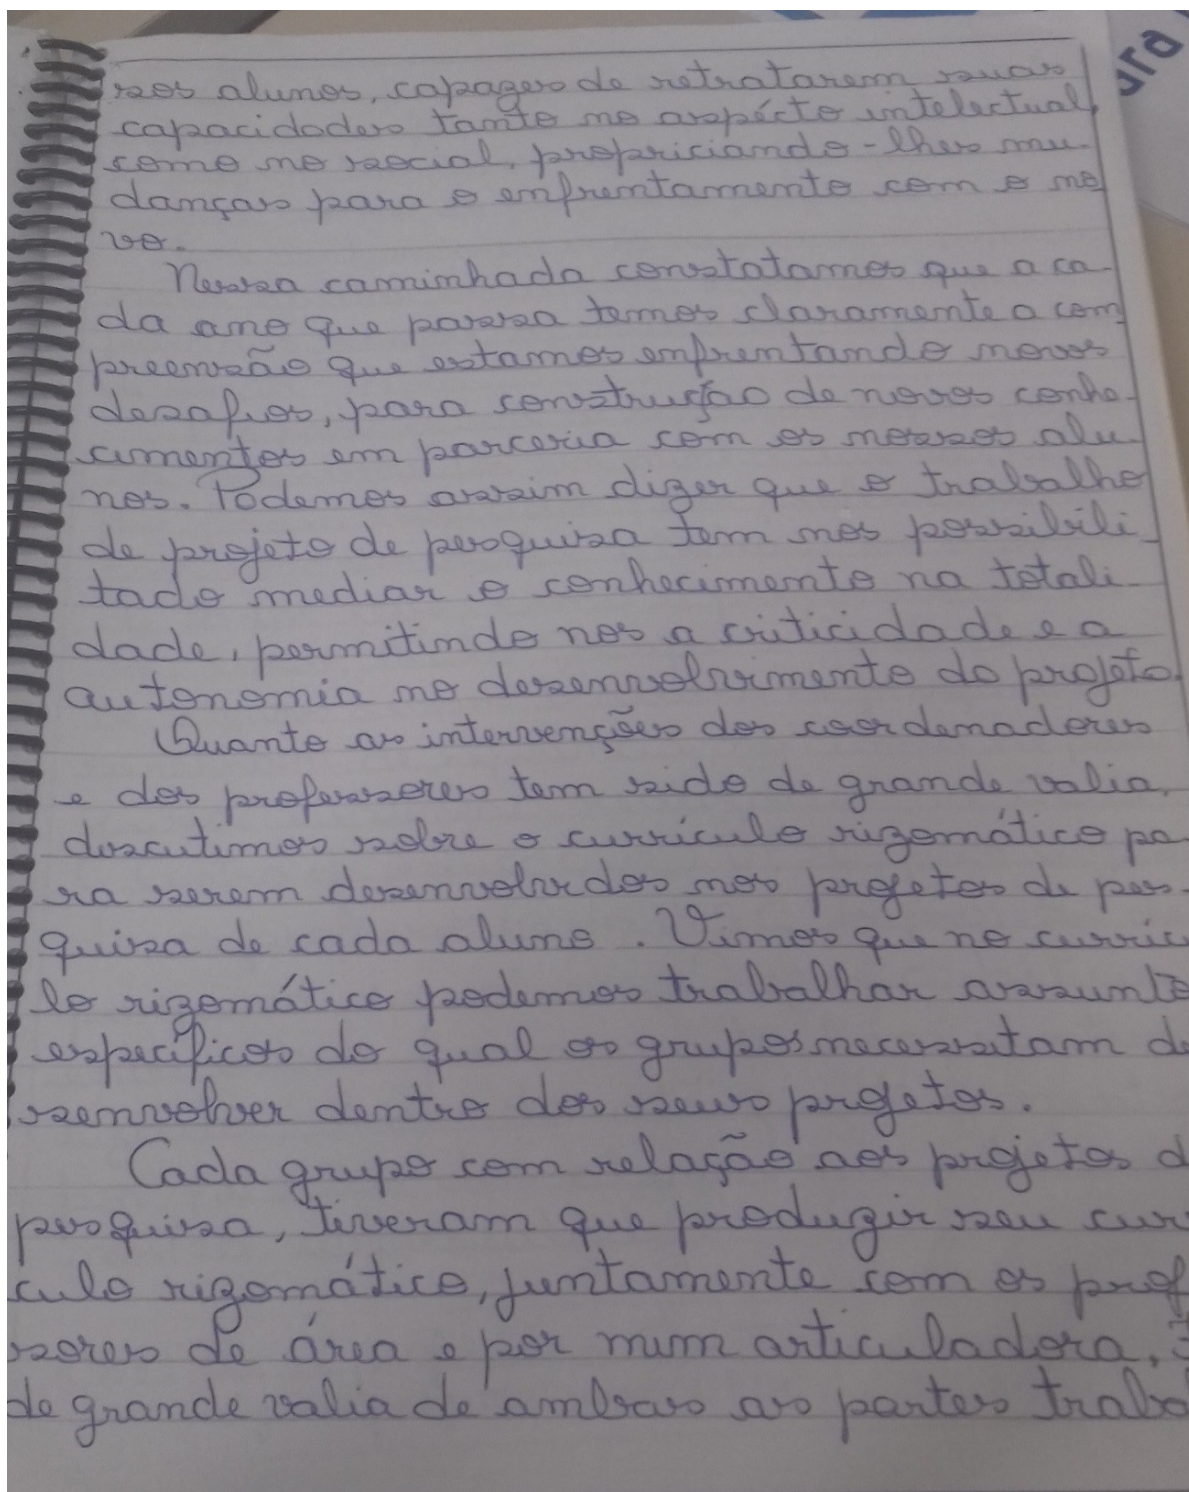 ura
sos alunos, capazes de retratarem suas
capacidades tanto no aspécto intelectual,
como no social, propriciando-lhes mu-
danças para o enfrentamento com o no
vo.
Nessa caminhada constatamos que a ca-
da ano que passa temos claramente a com
preensão que estamos enfrentando novos
desafios, para construção de novos conhe-
cimentos em parceria com os nossos alu-
nos. Podemos assim dizer que o trabalho
de projeto de pesquisa tem nos possibili-
tado mediar o conhecimento na totali-
dade, permitindo nos a criticidade e a
autonomia no desenvolvimento do projeto.
Quanto as intervenções dos coordenadores
e dos professores tem sido de grande valia,
discutimos sobre o currículo rizomático pa-
ra serem desenvolvidos nos projetos de pes-
quisa de cada aluno. Vimos que no curríc
lo rizomático podemos trabalhar assunto
específicos do qual os grupos necessitam de
senvolver dentro dos seus projetos.
Cada grupo com relação aos projetos d
pesquisa, tiveram que produzir seu cur
culo rizomático, juntamente com os prof
sores de área e por mim articuladora,
de grande valia de ambas as partes traba